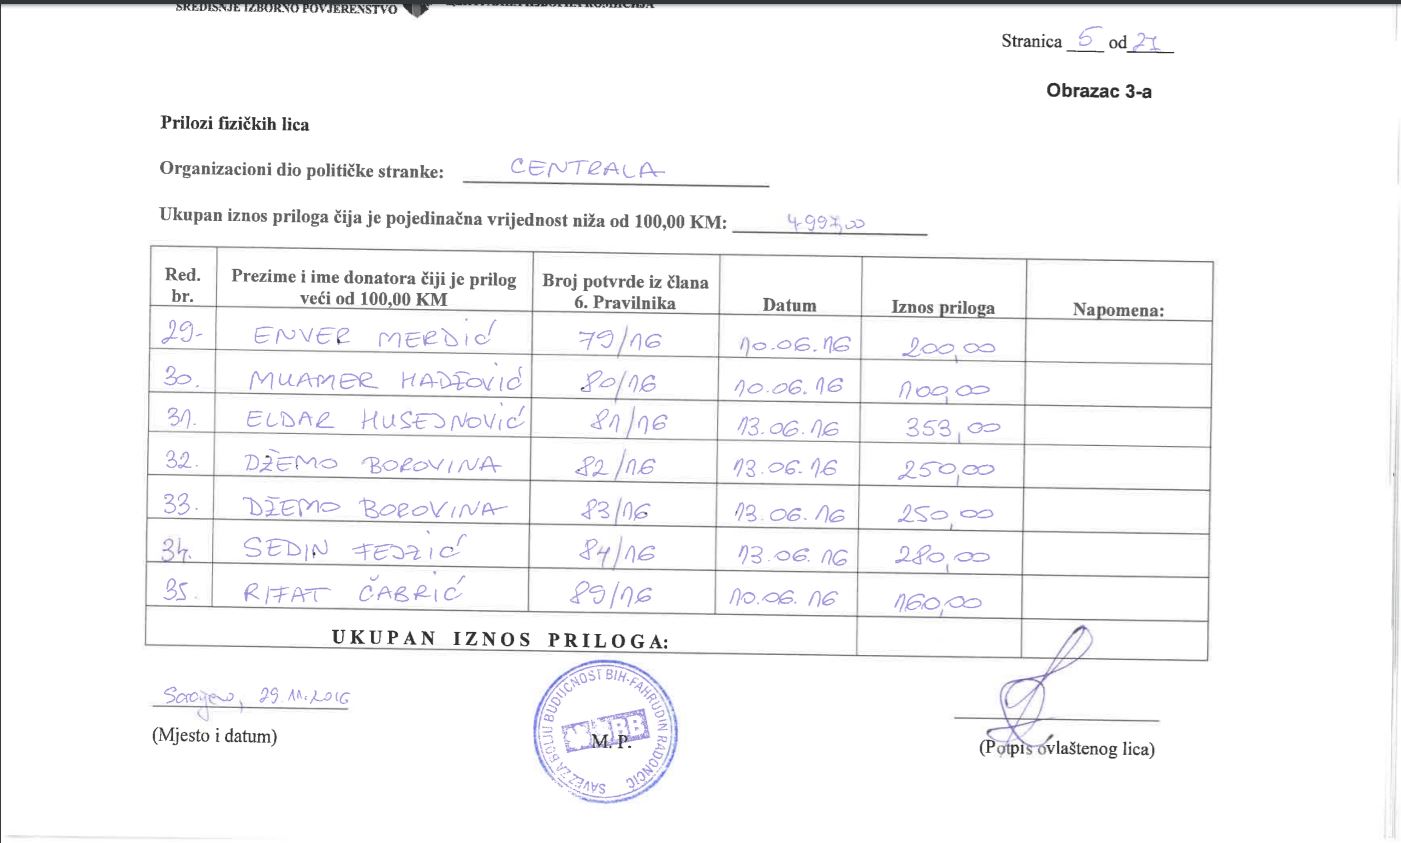 SREDIŠNJE IZBORNO POVJERENSTVO
Stranica 5 od 27
Obrazac 3-a
Prilozi fizičkih lica
Organizacioni dio političke stranke: CENTRALA
Ukupan iznos priloga čija je pojedinačna vrijednost niža od 100,00 KM: 4997,00
Red. br. Prezime i ime donatora čiji je prilog veći od 100,00 KM Broj potvrde iz člana 6. Pravilnika Datum Iznos priloga Napomena:
29. ENVER MERDIĆ 79/16 10.06.16 200,00
30. MUAMER HADŽOVIĆ 80/16 10.06.16 100,00
31. ELDAR HUSEJNOVIĆ 81/16 13.06.16 353,00
32. DŽEMO BOROVINA 82/16 13.06.16 250,00
33. DŽEMO BOROVINA 83/16 13.06.16 250,00
34. SEDIN FEJZIĆ 84/16 13.06.16 280,00
35. RIFAT ČABRIĆ 89/16 10.06.16 160,00
UKUPAN IZNOS PRILOGA:
Sarajevo, 29.11.2016
(Mjesto i datum)
SAVEZ ZA BOLJU BUDUĆNOST BIH-FAHRUDIN RADONČIĆ
M. P.
(Potpis ovlaštenog lica)